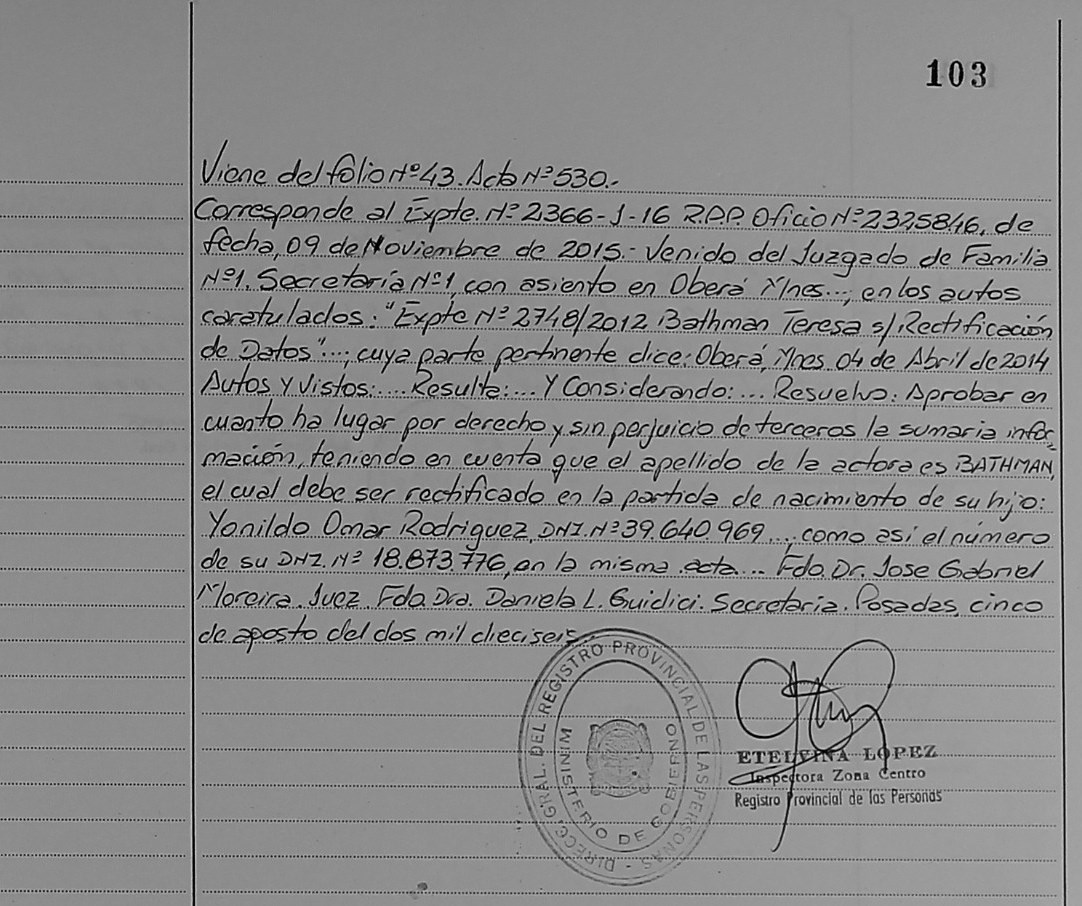 103
Viene del folio Nº 43. Acta Nº 530.-
Corresponde al Expte. Nº 2366-J-16 R.P.P. Oficio Nº 2325846, de
fecha, 09 de Noviembre de 2015.- Venido del Juzgado de Familia
Nº1. Secretaría Nº1, con asiento en Oberá Mnes..., en los autos
caratulados: "Expte Nº 2748/2012 Bathman Teresa s/Rectificación
de Datos"...; cuya parte pertinente dice: Oberá, Mnes. 04 de Abril de 2014
Autos y Vistos:.... Resulta:.... Y Considerando:... Resuelvo: Aprobar en
cuanto ha lugar por derecho y sin perjuicio de terceros la sumaria infor
mación, teniendo en cuenta que el apellido de la actora es BATHMAN,
el cual debe ser rectificado en la partida de nacimiento de su hijo:
Yonildo Omar Rodriguez, DNI. Nº 39.640.969..., como así el número
de su DNI. Nº 18.873.776, en la misma acta... Fdo. Dr. Jose Gabriel
Moreira. Juez. Fdo. Dra. Daniela L. Guidici. Secretaria. Posadas, cinco
de agosto del dos mil dieciseis.
DIRECC. GRAL. DEL REGISTRO PROVINCIAL DE LAS PERSONAS -
MINISTERIO DE GOBIERNO
ETELVINA LOPEZ
Inspectora Zona Centro
Registro Provincial de las Personas